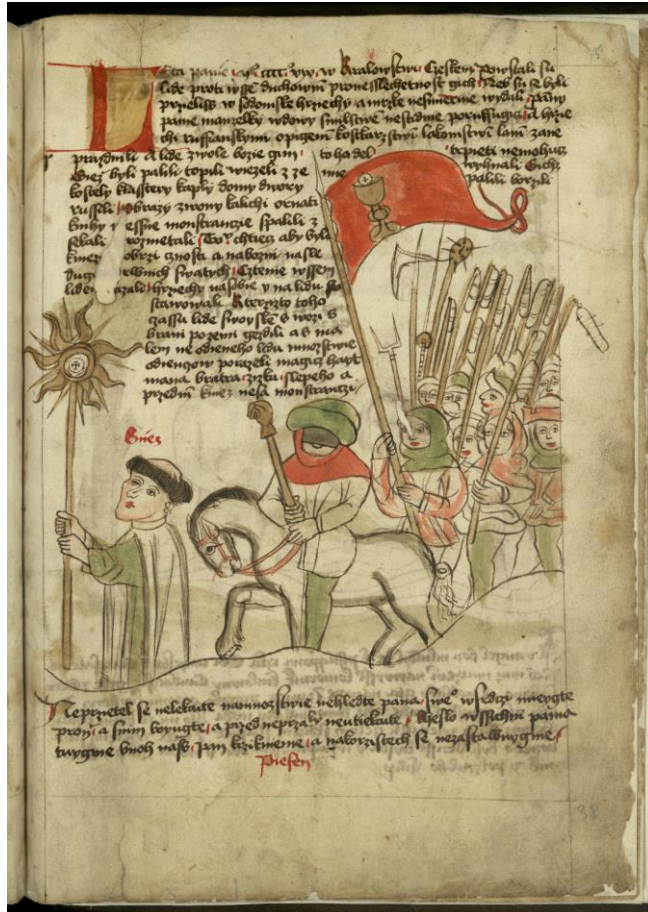 Leta panie
w Kralowstwi Czeskem powstali su
lide proti wsse duchowni pro nesslechetnost gich Neb su se byli
w sodomske hrziechy a mrzke nesmierne wydali panny
panie manzelky wdowy smilstwie nestidnie porussugic A hrzie
chi russianskymi opigenim kostkarzstwi lakomstwi lani zane
prazdnili A lide z wole bozie gim toho del trpieti nemohuc
Kniez byli palili topili wiezeli z ze mie wyhnali Gich
kostely klasstery kaply domy dwory palili borzili
russili Obrazy zwony kalichi ornati
knihy y monstrancie spalili z
sekali rozmetali chtiec aby byla
kniez obrzi ctnosti a nabozni nasle
swatych Cztenie wssem
lidem hrziechy na sobie y na lidu
stawowali A terzizto toho
czassu lide
brani po zemi gezdili a s ma
lem ne odieneho lidu mnozstwie
odiencow porazeli magic hayt
mana bratra zizku slepeho a
przed nimi kniez nesa monstranci
kniez
Neprzatel se nelekaite na mnozstwie nehledte pana sweho w srdci mieygte
pron a s nim boyugte a przed neprzately neutiekaite Heslo wssichni pama
tuygme buoh nass pan krzikneme a na korzistech se nezastawuygme
Piesen
38